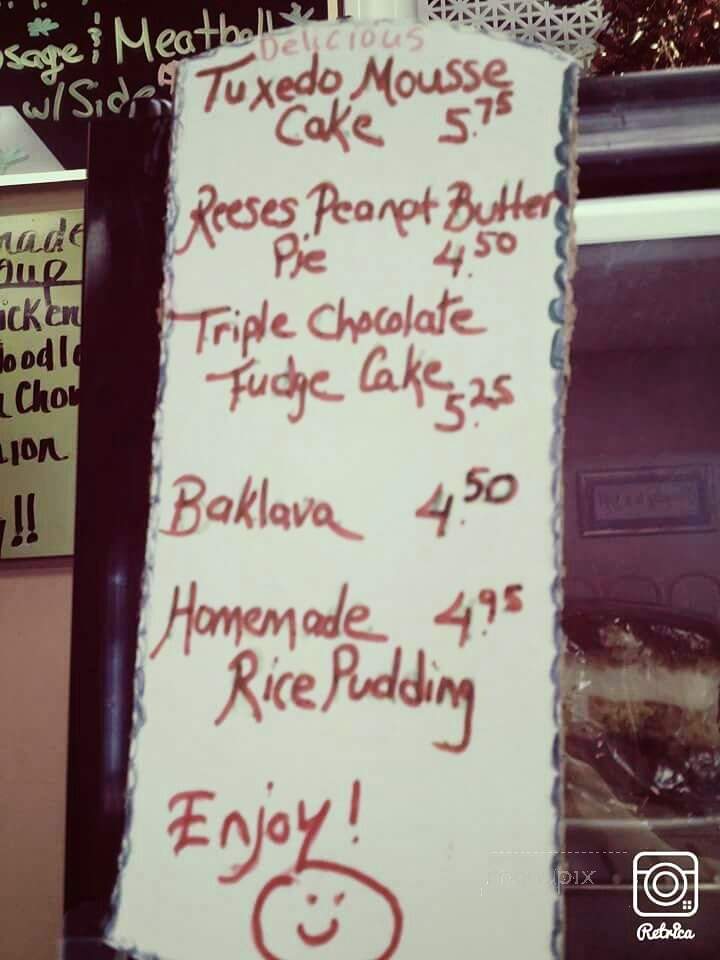 & Meatball
w/Side
Delicious
Tuxedo Mousse
Cake 5.75
Reeses Peanut Butter
Pie 4.50
Triple Chocolate
Fudge Cake
5.25
Baklava 4.50
Homemade 4.95
Rice Pudding
Enjoy!
!!
Retrica